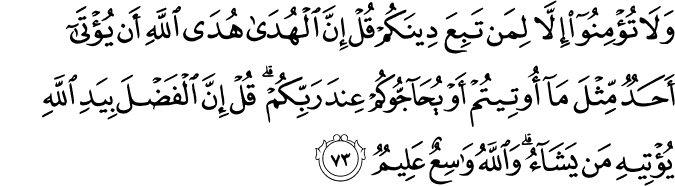 وَلَا تُؤۡمِنُوٓاْ إِلَّا لِمَن تَبِعَ دِينَكُمۡ قُلۡ إِنَّ ٱلۡهُدَىٰ هُدَى ٱللَّهِ أَن يُؤۡتَىٰٓ
أَحَدٞ مِّثۡلَ مَآ أُوتِيتُمۡ أَوۡ يُحَآجُّوكُمۡ عِندَ رَبِّكُمۡۗ قُلۡ إِنَّ ٱلۡفَضۡلَ بِيَدِ ٱللَّهِ
يُؤۡتِيهِ مَن يَشَآءُۗ وَٱللَّهُ وَٰسِعٌ عَلِيمٞ ٧٣